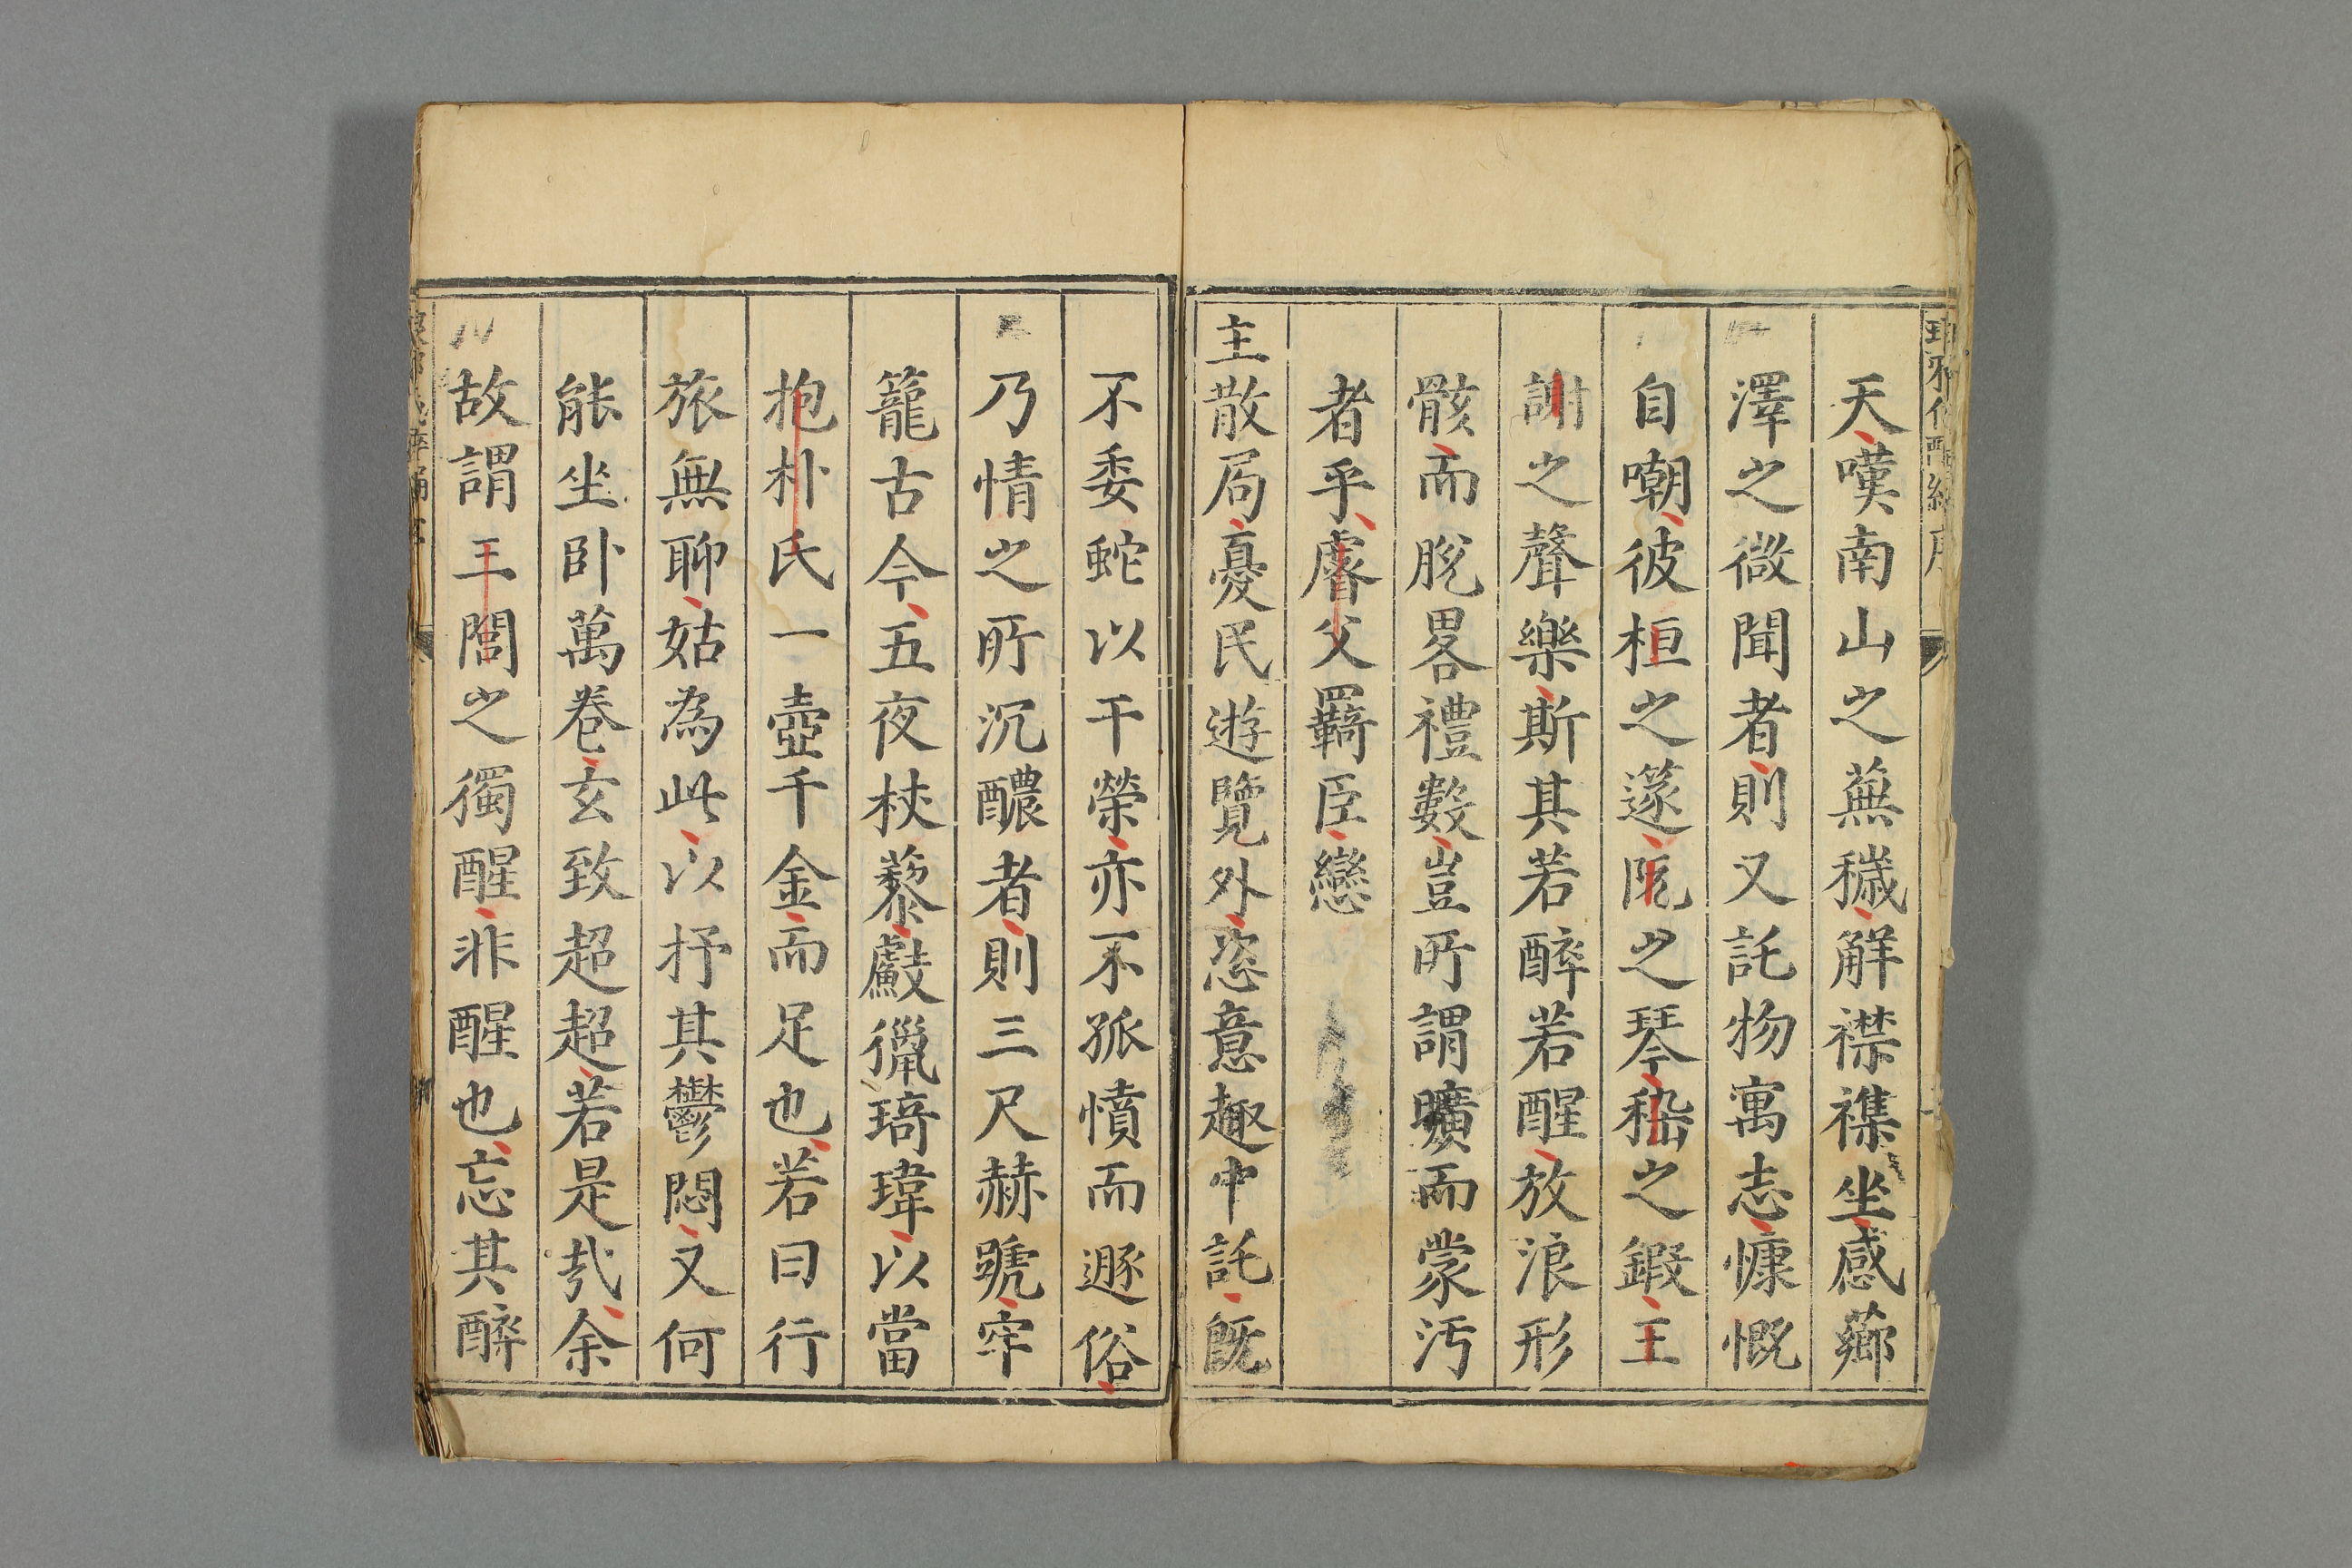 天嘆南山之蕪穢解襟襍坐感薌
澤之微聞者則又託物寓志慷慨
自嘲彼桓之篴阮之琴嵇之鍛王
謝之聲樂斯其若醉若醒放浪形
骸而脫畧禮數豈所謂曠而蒙汚
者乎睿父羈臣戀
主散局憂民遊覽外恣意趣中託旣
不委蛇以干榮亦不孤憤而遯俗
乃情之所沉醲者則三尺赫蹏牢
籠古今五夜杖藜㪨獵琦瑋以當
抱朴氏一壺千金而足也若曰行
旅無聊姑為此以抒其鬱悶又何
能坐卧萬卷玄致超超若是哉余
故謂三閭之獨醒非醒也忘其醉